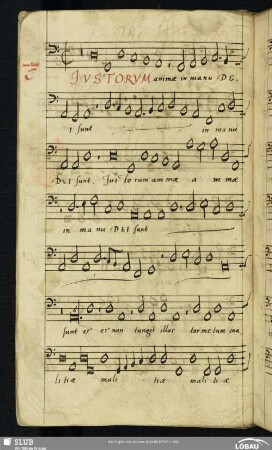 IVSTORVM animæ in manu DE,
I sunt in manu
DEI sunt, Justorum animæ a nimæ
in manu DEI sunt
sunt et et non tanget illos tormentum ma,
litiæ mali tiæ malitiæ
SLUB
LÖBAU